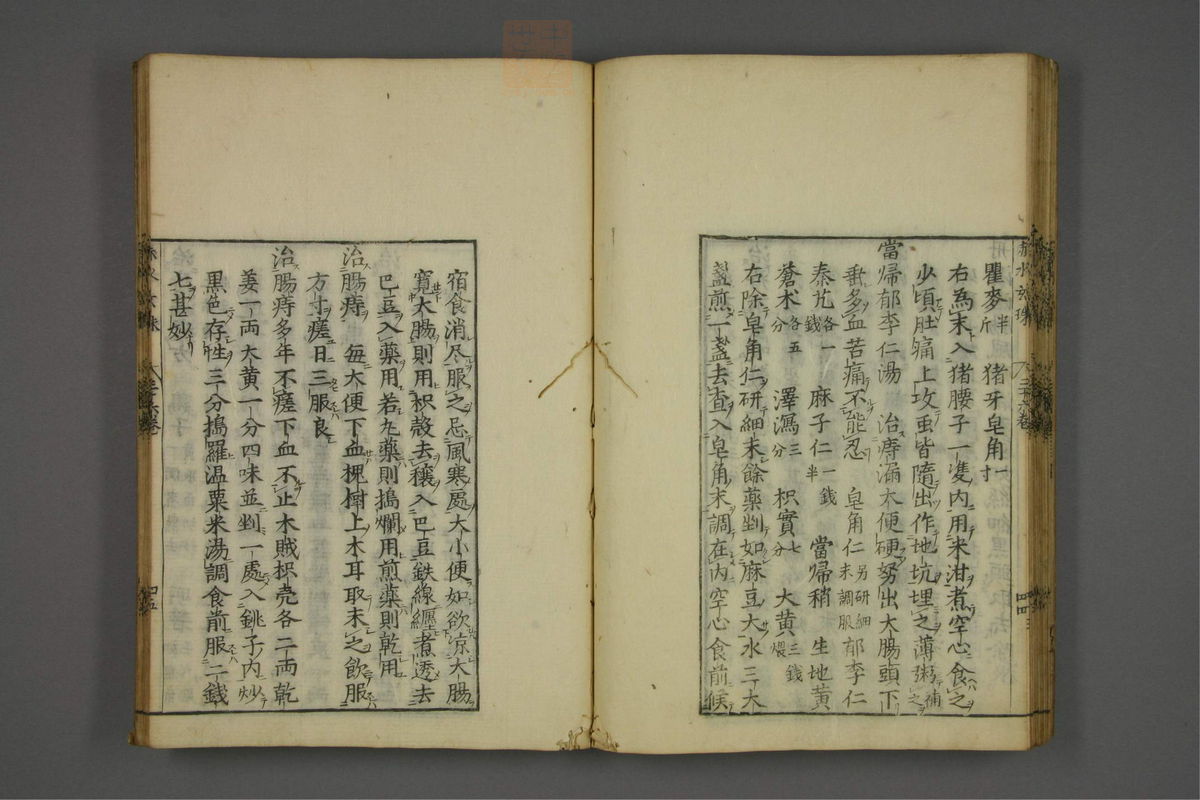 瞿麥半斤 猪牙皂角一寸
右為末入猪腰子一隻内用米泔煮空心食之
少頃肚痛上攻重皆隨出作地坑埋之薄粥補之
當歸郁李仁湯 治痔漏大便硬努出大腸頭下
血多血苦痛不能忍 皂角仁另研細末調服 郁李仁
秦艽各一錢 麻子仁一錢半 當歸稍 生地黄
蒼术各五分 澤瀉三分 枳實七分 大黄三錢煨
右除皂角仁研細末餘薬剉如麻豆大水三大
盞煎一盞去査入皂角末調在内空心食前候
宿食消尽服之忌風寒處大小便如欲凉大腸
寛大腸則用枳殻去穰入巴豆鉄線纏煮透去
巴豆入薬用若丸薬則搗爛用煎薬則乾用
治腸痔 毎大便下血槐樹上木耳取末之飲服
方寸瘥日三服良
治腸痔多年不瘥下血不止木賊枳壳各二両乾
姜一両大黄一分四味並剉一處入銚子内炒
黒色存性三分搗羅温粟米湯調食前服二錢
七甚妙